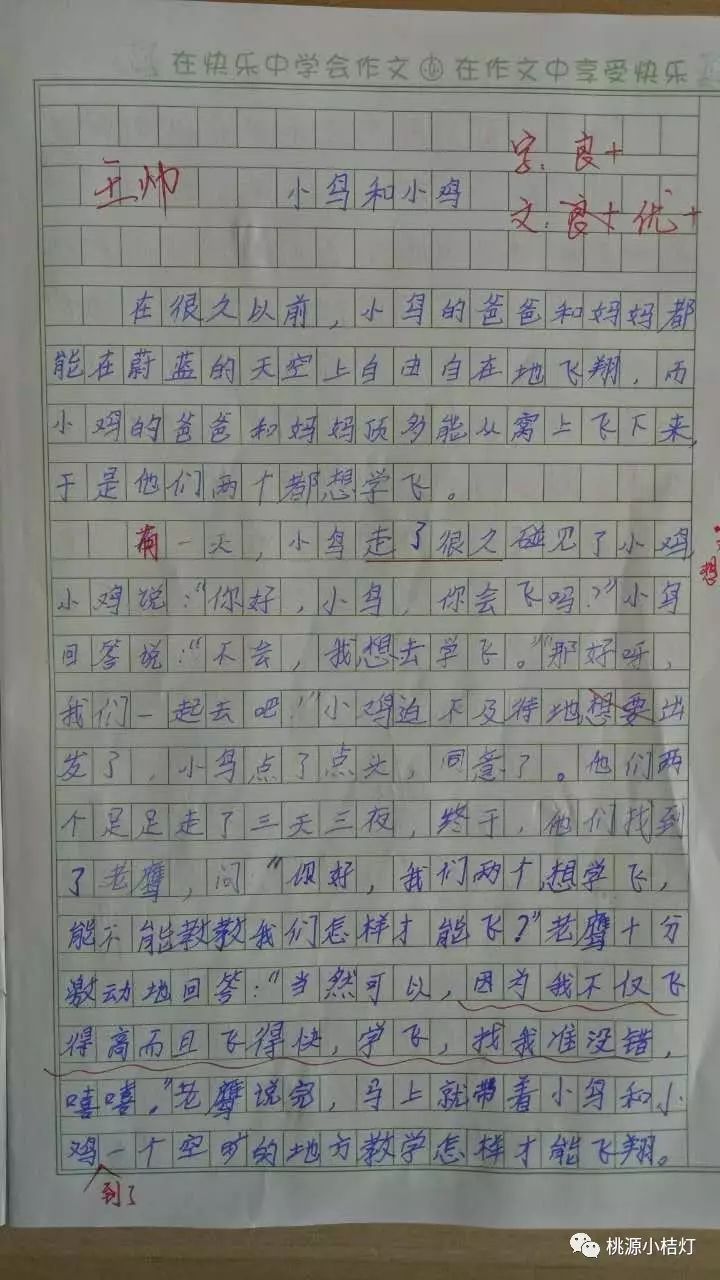 在快乐中学会作文 在作文中享受快乐
字：良+
王帅 小鸟和小鸡
文：良+ 优+
在很久以前，小鸟的爸爸和妈妈都
能在蔚蓝的天空上自由自在地飞翔，而
小鸡的爸爸和妈妈顶多能从窝上飞下来，
于是他们两个都想学飞。
有一天，小鸟走了很久碰见了小鸡
想
小鸡说：“你好，小鸟，你会飞吗？”小鸟
回答说：“不会，我想去学飞。”“那好呀，
我们一起去吧！”小鸡迫不及待地想要出
发了，小鸟点了点头，同意了。他们两
个足足走了三天三夜，终于，他们找到
了老鹰，问“你好，我们两个想学飞，
能不能教教我们怎样才能飞？”老鹰十分
激动地回答：“当然可以，因为我不仅飞
得高而且飞得快，学飞，找我准没错，
嘻嘻。”老鹰说完，马上就带着小鸟和小
鸡一个空旷的地方教学怎样才能飞翔。
到了
桃源小桔灯